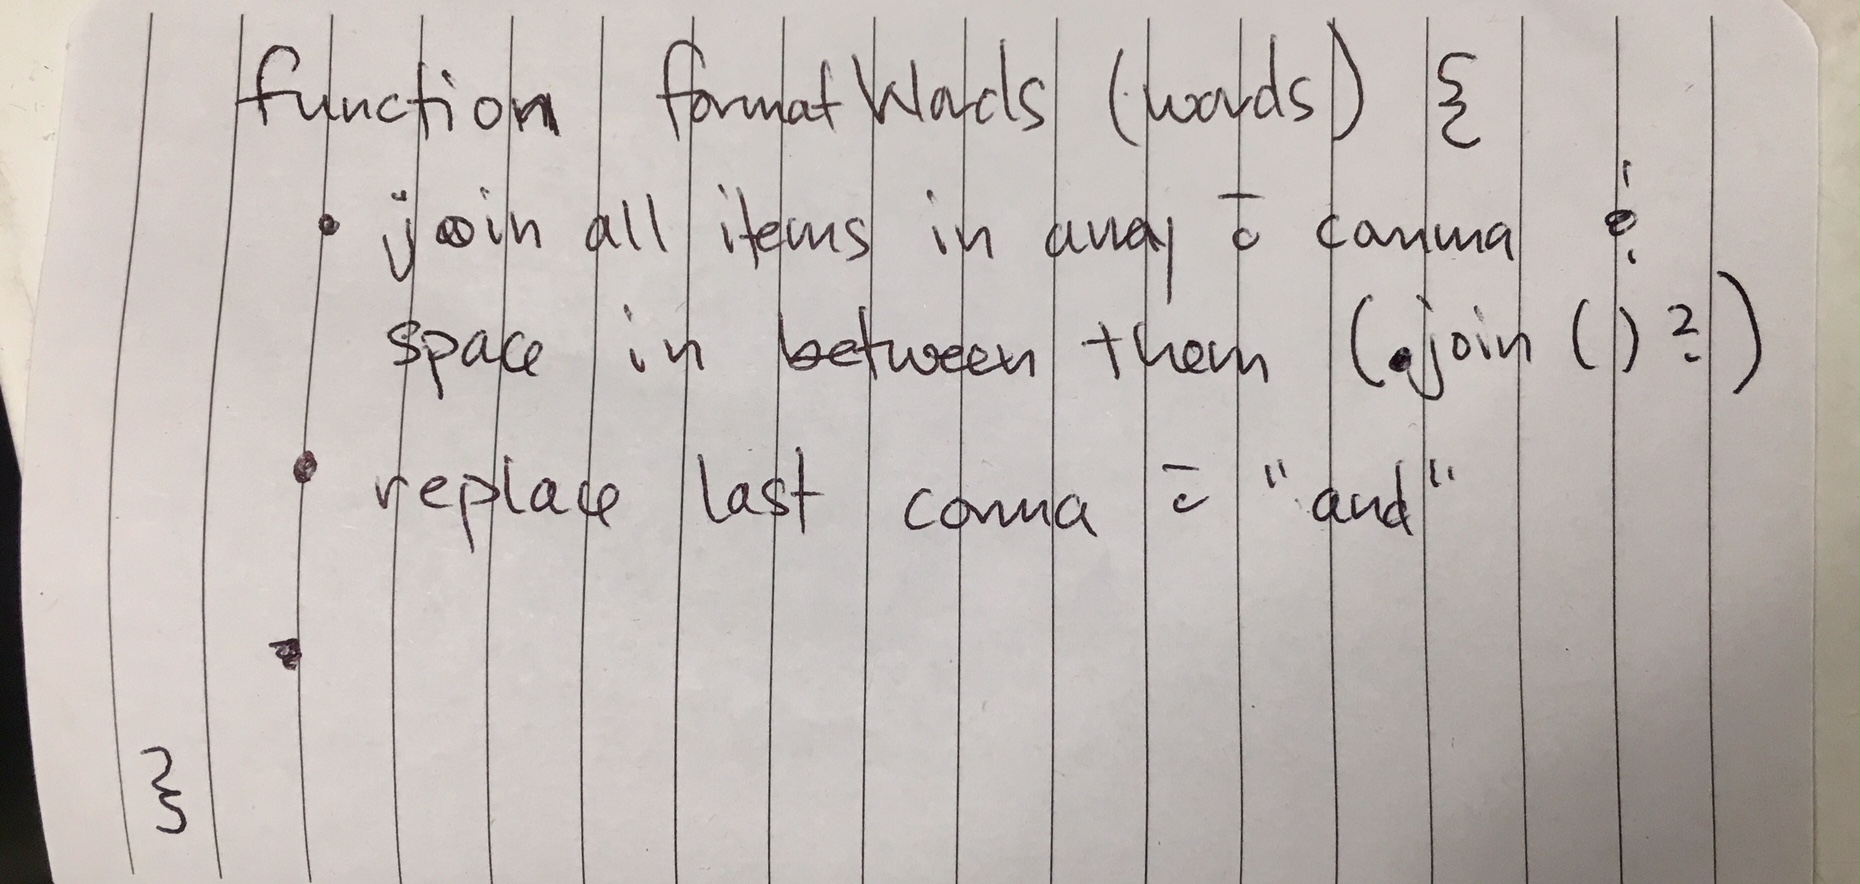 function formatWords (words) {
• join all items in array c̄ comma &
space in between them (.join () ?)
• replace last comma c̄ "and"
•
}